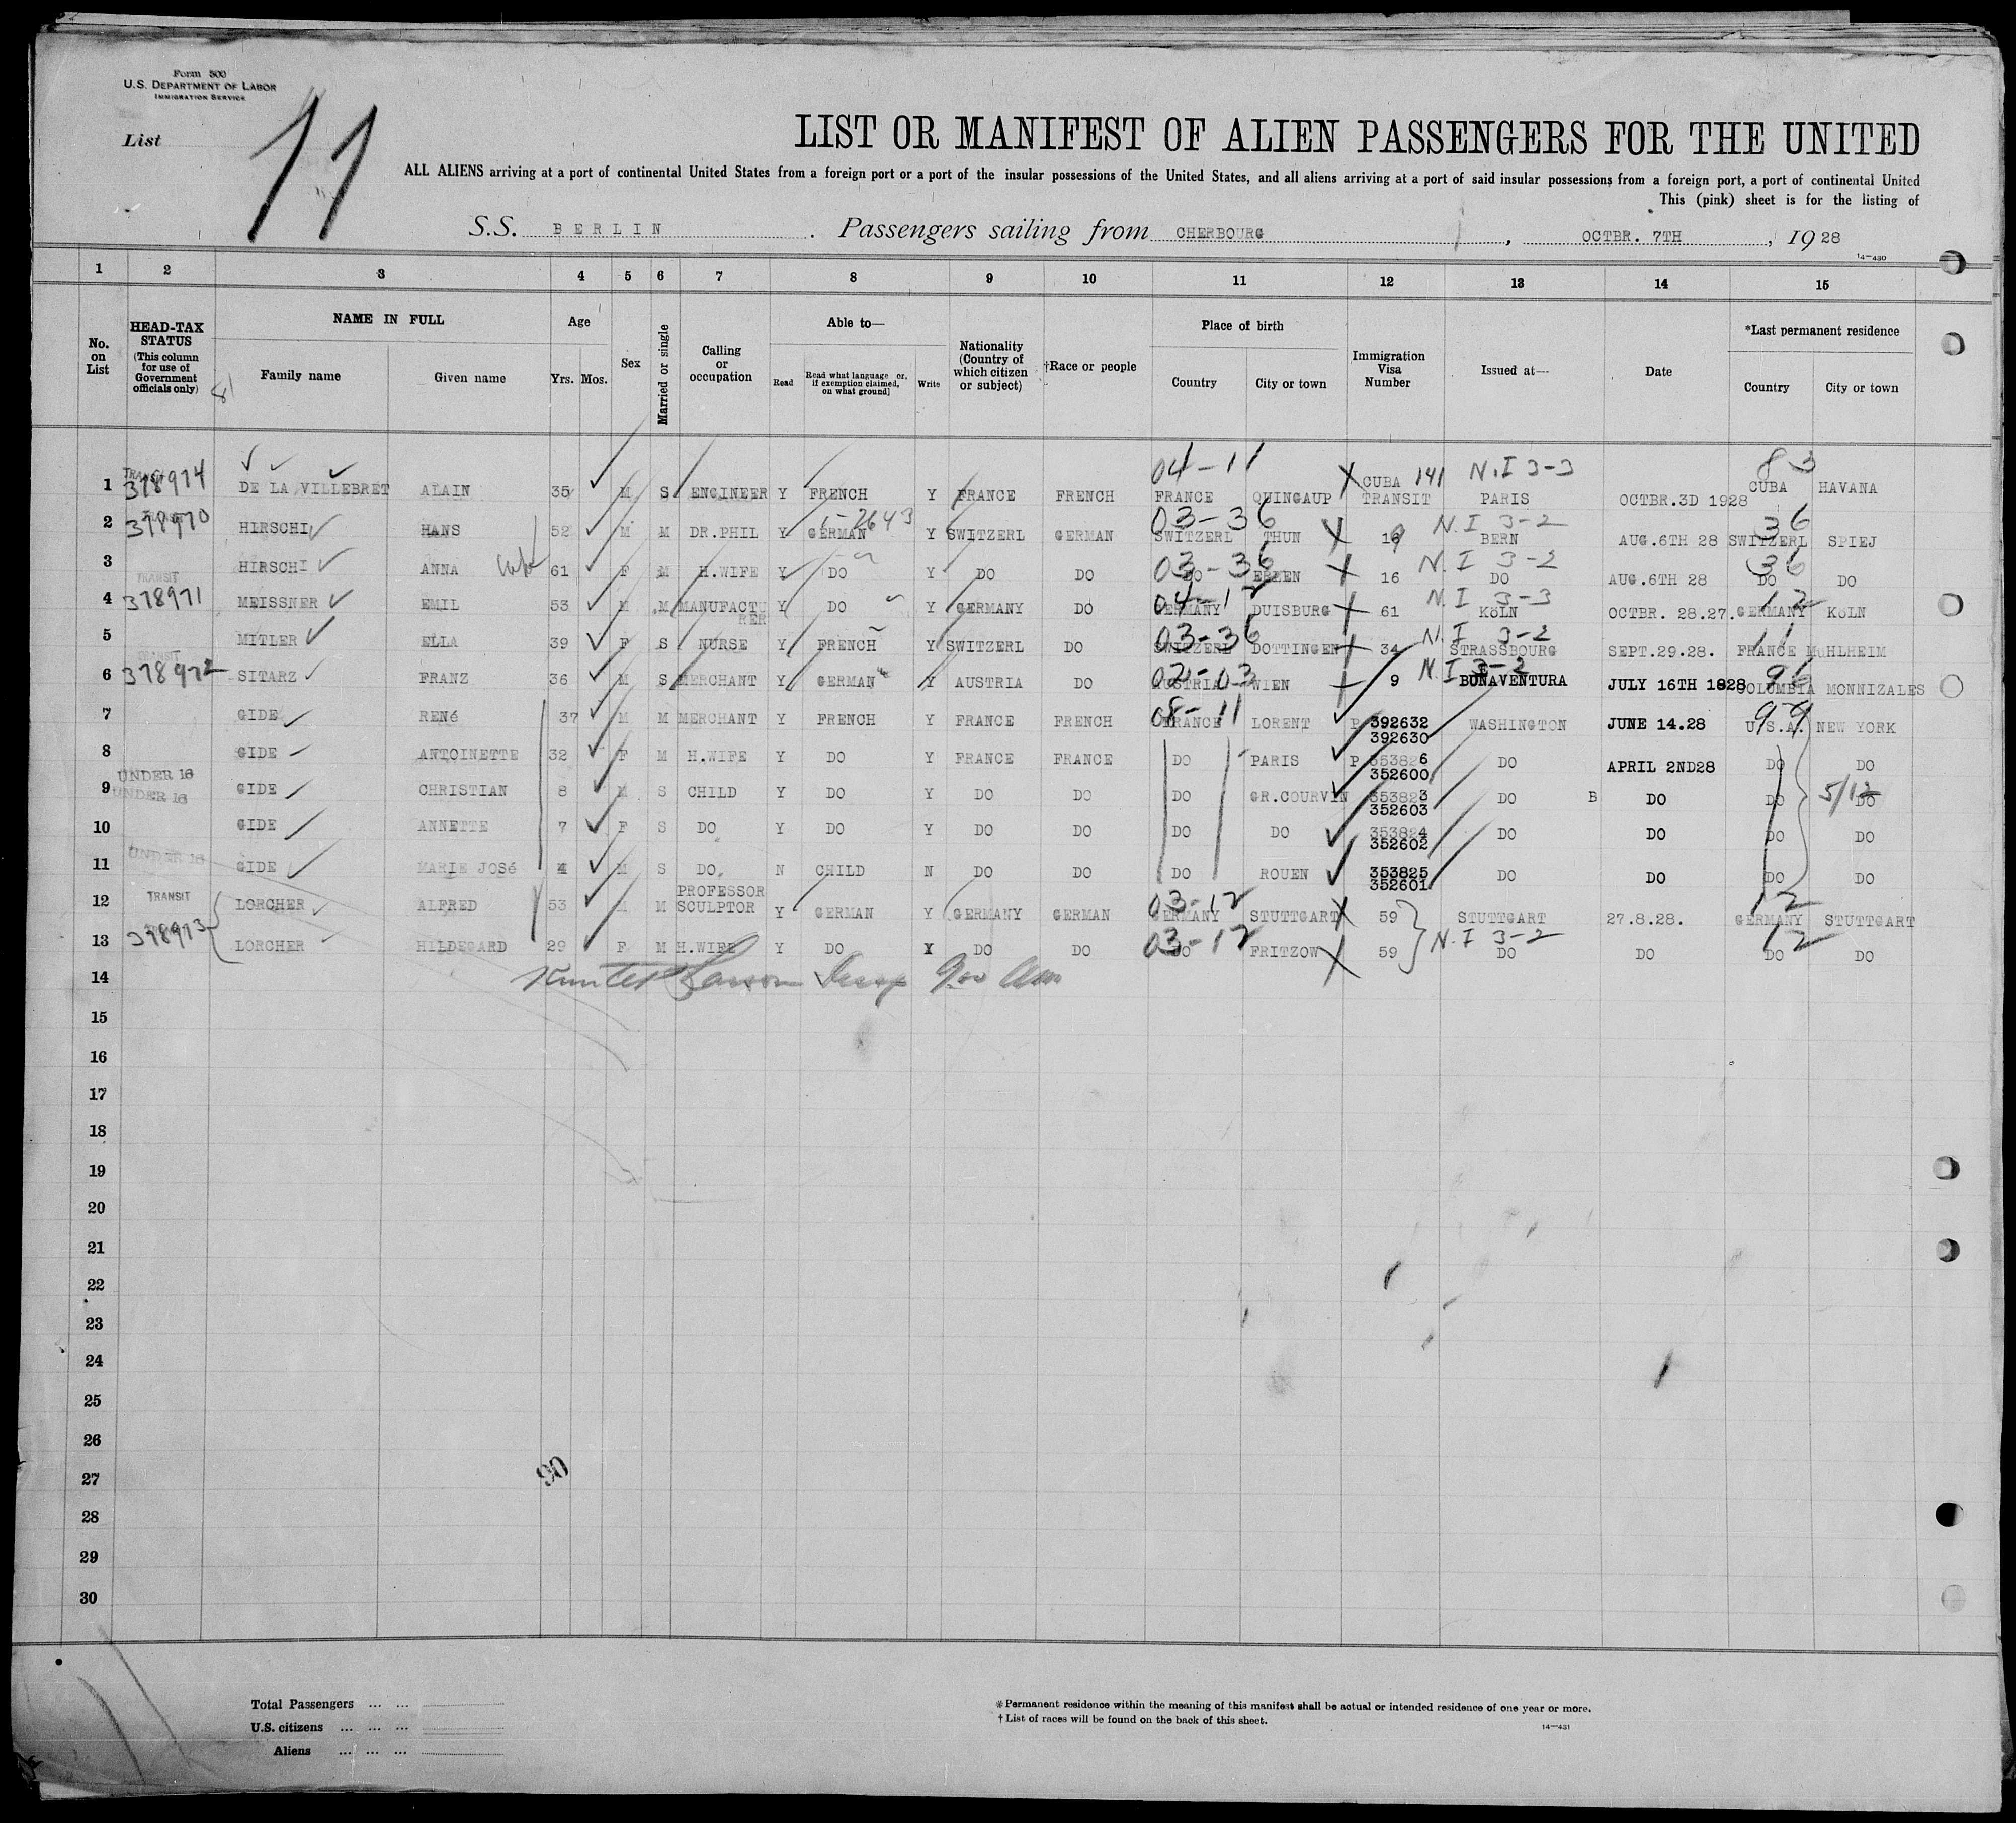 Form 500
U.S. DEPARTMENT OF LABOR
IMMIGRATION SERVICE
List
11
LIST OR MANIFEST OF ALIEN PASSENGERS FOR THE UNITED
ALL ALIENS arriving at a port of continental United States from a foreign port or a port of the insular possessions of the United States, and all aliens arriving at a port of said insular possessions from a foreign port, a port of continental United
This (pink) sheet is for the listing of
S.S. BERLIN . Passengers sailing from CHERBOURG , OCTBR. 7TH , 1928
14—430
1 2 3 4 5 6 7 8 9 10 11 12 13 14 15
No. on List
HEAD-TAX STATUS (This column for use of Government officials only)
NAME IN FULL Family name Given name
Age Yrs. Mos.
Sex
Married or single
Calling or occupation
Able to— Read Read what language or, if exemption claimed, on what ground] Write
Nationality (Country of which citizen or subject)
†Race or people
Place of birth Country City or town
Immigration Visa Number
Issued at—
Date
*Last permanent residence Country City or town
04-11 141 N.I 3-3 83
1 TRANSIT 378974 DE LA VILLEBRET ALAIN 35 M S ENGINEER Y FRENCH Y FRANCE FRENCH FRANCE QUINGAUP CUBA TRANSIT PARIS OCTBR.3D 1928 CUBA HAVANA
1-2643 03-36 N.I 3-2 36
2 378970 HIRSCHI HANS 52 M M DR.PHIL Y GERMAN Y SWITZERL GERMAN SWITZERL THUN 16 BERN AUG.6TH 28 SWITZERL SPIEJ
03-36 N.I 3-2 36
3 HIRSCHI ANNA 61 F M H.WIFE Y DO Y DO DO DO 16 DO AUG.6TH 28 DO DO
04-12 N.I 3-3 12
4 TRANSIT 378971 MEISSNER EMIL 53 M M MANUFACTURER Y DO Y GERMANY DO GERMANY DUISBURG 61 KÖLN OCTBR. 28.27. GERMANY KÖLN
03-36 N.I 3-2 11
5 MITLER ELLA 39 F S NURSE Y FRENCH Y SWITZERL DO SWITZERL DOTTINGEN 34 STRASSBOURG SEPT.29.28. FRANCE MUHLHEIM
02-03 N.I 3-2 96
6 TRANSIT 378972 SITARZ FRANZ 36 M S MERCHANT Y GERMAN Y AUSTRIA DO AUSTRIA WIEN 9 BONAVENTURA JULY 16TH 1928 COLUMBIA MONNIZALES
08-11 99
7 GIDE RENé 37 M M MERCHANT Y FRENCH Y FRANCE FRENCH FRANCE LORENT P 392632 WASHINGTON JUNE 14.28 U.S.A. NEW YORK
392630
8 GIDE ANTOINETTE 32 F M H.WIFE Y DO Y FRANCE FRANCE DO PARIS P 353826 DO APRIL 2ND28 DO DO
352600
UNDER 16
9 UNDER 16 GIDE CHRISTIAN 8 M S CHILD Y DO Y DO DO DO GR.COURVIN 353823 DO B DO DO DO 5/12
352603
10 GIDE ANNETTE 7 F S DO Y DO Y DO DO DO DO 353824 DO DO DO DO
352602
11 UNDER 16 GIDE MARIE JOSé 4 M S DO. N CHILD N DO DO DO ROUEN 353825 DO DO DO DO
352601
03-12 12
12 TRANSIT LORCHER ALFRED 53 M M PROFESSOR SCULPTOR Y GERMAN Y GERMANY GERMAN GERMANY STUTTGART 59 STUTTGART 27.8.28. GERMANY STUTTGART
03-12 N.I 3-2 12
13 378973 LORCHER HILDEGARD 29 F M H.WIFE Y DO Y DO DO DO FRITZOW 59 DO DO DO DO
14
15
16
17
18
19
20
21
22
23
24
25
26
27
90
28
29
30
Total Passengers ... ...
U.S. citizens ... ... ...
Aliens ... ... ...
*Permanent residence within the meaning of this manifest shall be actual or intended residence of one year or more.
†List of races will be found on the back of this sheet.
14—431